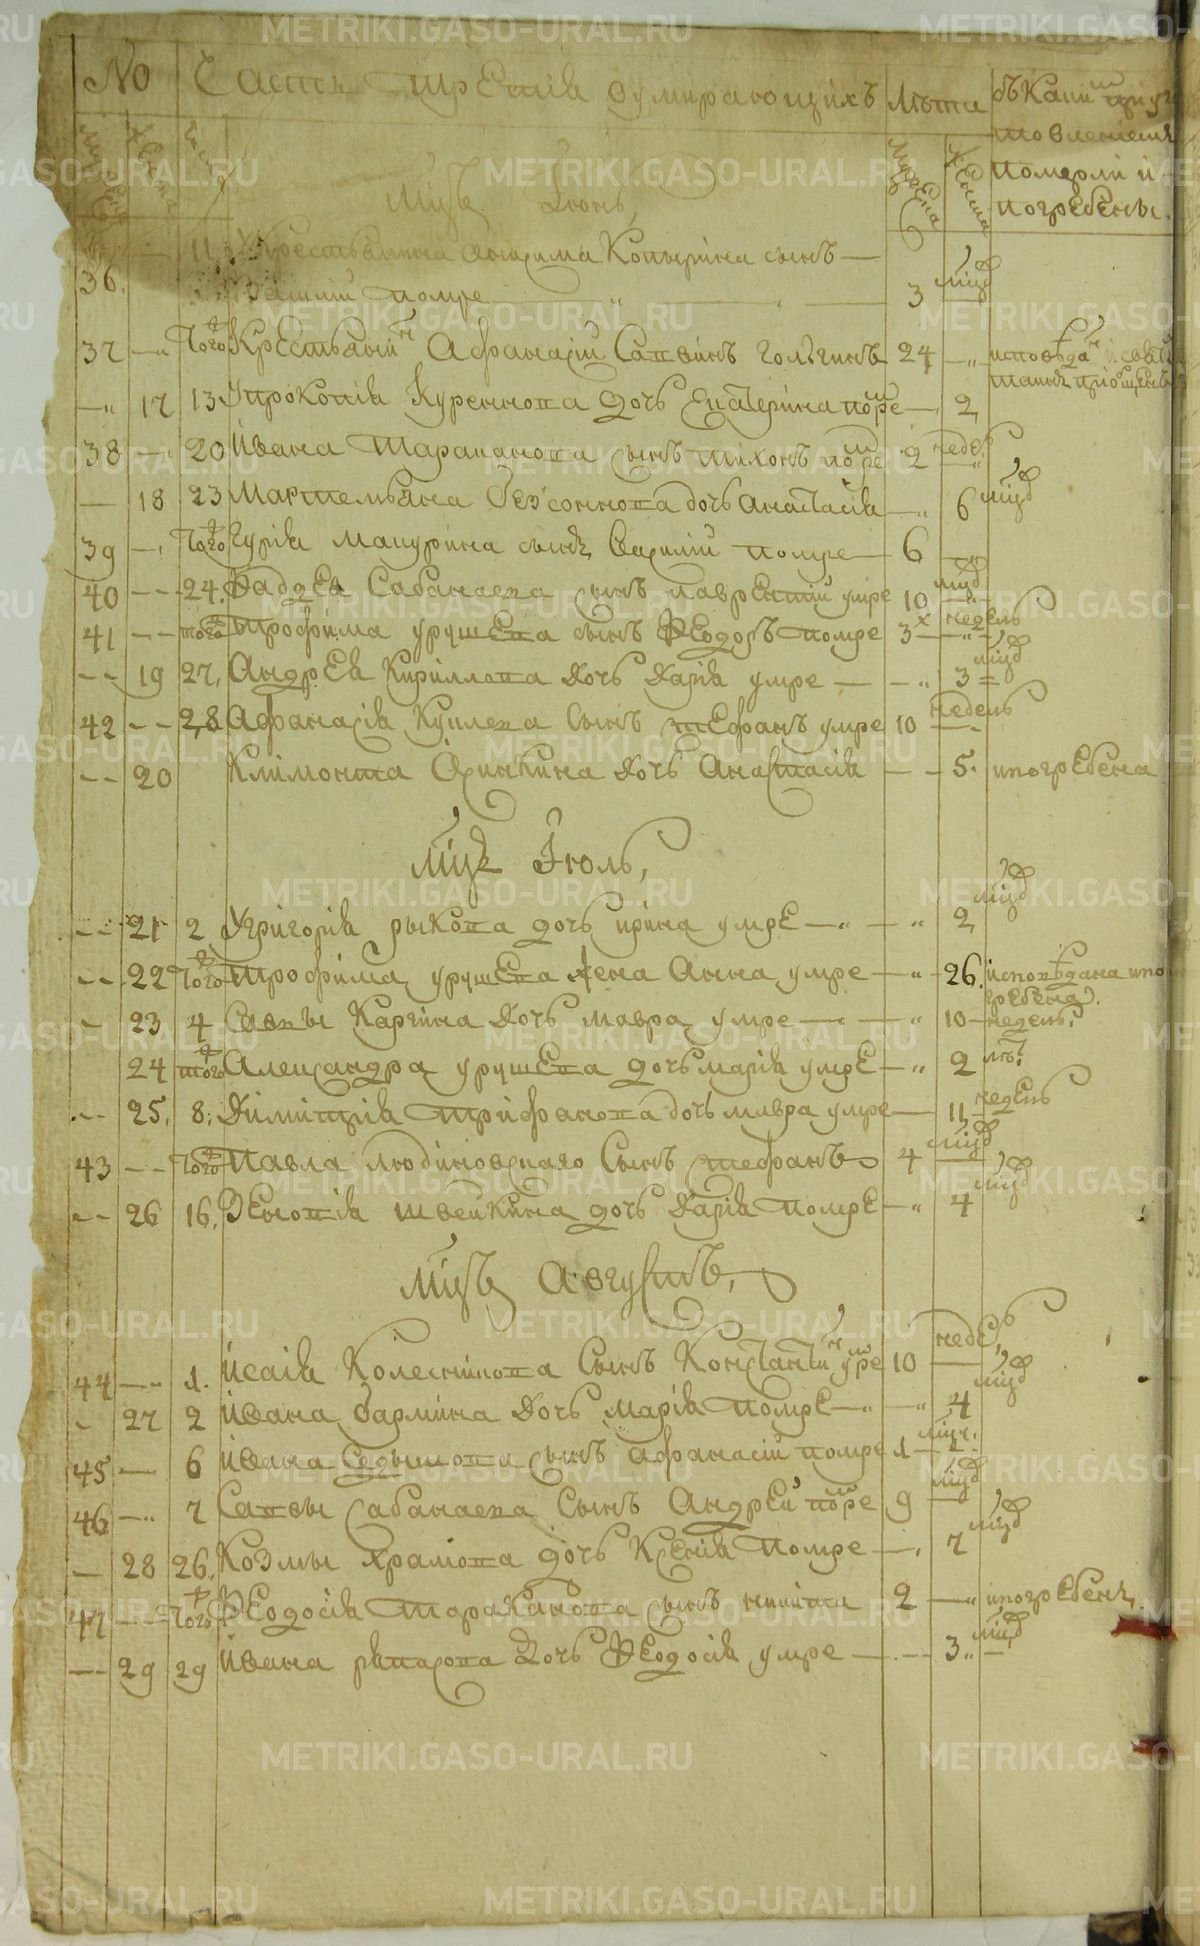 No Часть третия оумирающихъ лѣта съ какимъ приуго
товлениемъ
померли и
погребены
мужеска женска число мужеска женска
Мцъ Іюнь
11 У крестьянина Копырина сынъ
36 помре 3 мцд
37 того крестьянинъ Афанасій Савинъ голыгинъ 24 исповѣданъ и святы
таинъ приобщенъ
17 13 У прокопія Куренкова дочь Екатерина помре 2
38 20 ивана Тараканова сынъ тихонъ помре 2 недѣ
18 23 Мартемьяна безсоннова дочь анастасія 6 мцд
39 того Гурія Макурина сынъ Василій помре 6 мцд
40 24 Фадѣя Сабанаева сынъ лаврентій умре 10
41 того трофима урушева сынъ Ѳеодоръ помре 3 недель
19 27 Андрея Кириллова дочь Дарія умре 3 мцд
42 28 Афанасія Куклева сынъ стефанъ умре 10 недель
20 Климонта Ожинкина дочь Анастасія 5 ипогребена
Мцъ Іюль
21 2 У григорія рыкова дочь ирина умре 2 мцд
22 того трофима урушева жена Анна умре 26 исповѣдана ипо
гребена
23 4 Саввы Каргина дочь мавра умре 10 недель
24 того Александра урушева дочь марія умре 2 лѣт
25 8 Димитрія трифанова дочь мавра умре 11 недель
43 того Павла людиновскаго сынъ стефанъ 4 мцд
26 16 Зеновія швейкина дочь Дарія помре 4 мцд
Мцъ Августъ
44 1 Исаія Колесникова сынъ Константинъ умре 10 неделъ
27 2 ивана бармина дочь марія помре 4 мцд
45 6 ивана Седышова сынъ афанасій помре 1
46 7 Саввы сабанаева сынъ Андрей помре 9 мцд
28 26 Козмы храмова дочь Ксенія помре 7 мцд
47 того Ѳеодосія Тараканова сынъ никита 2 ипогребенъ
29 29 ивана рыпахова дочь Ѳеодосія умре 3 мцд
METRIKI.GASO-URAL.RU